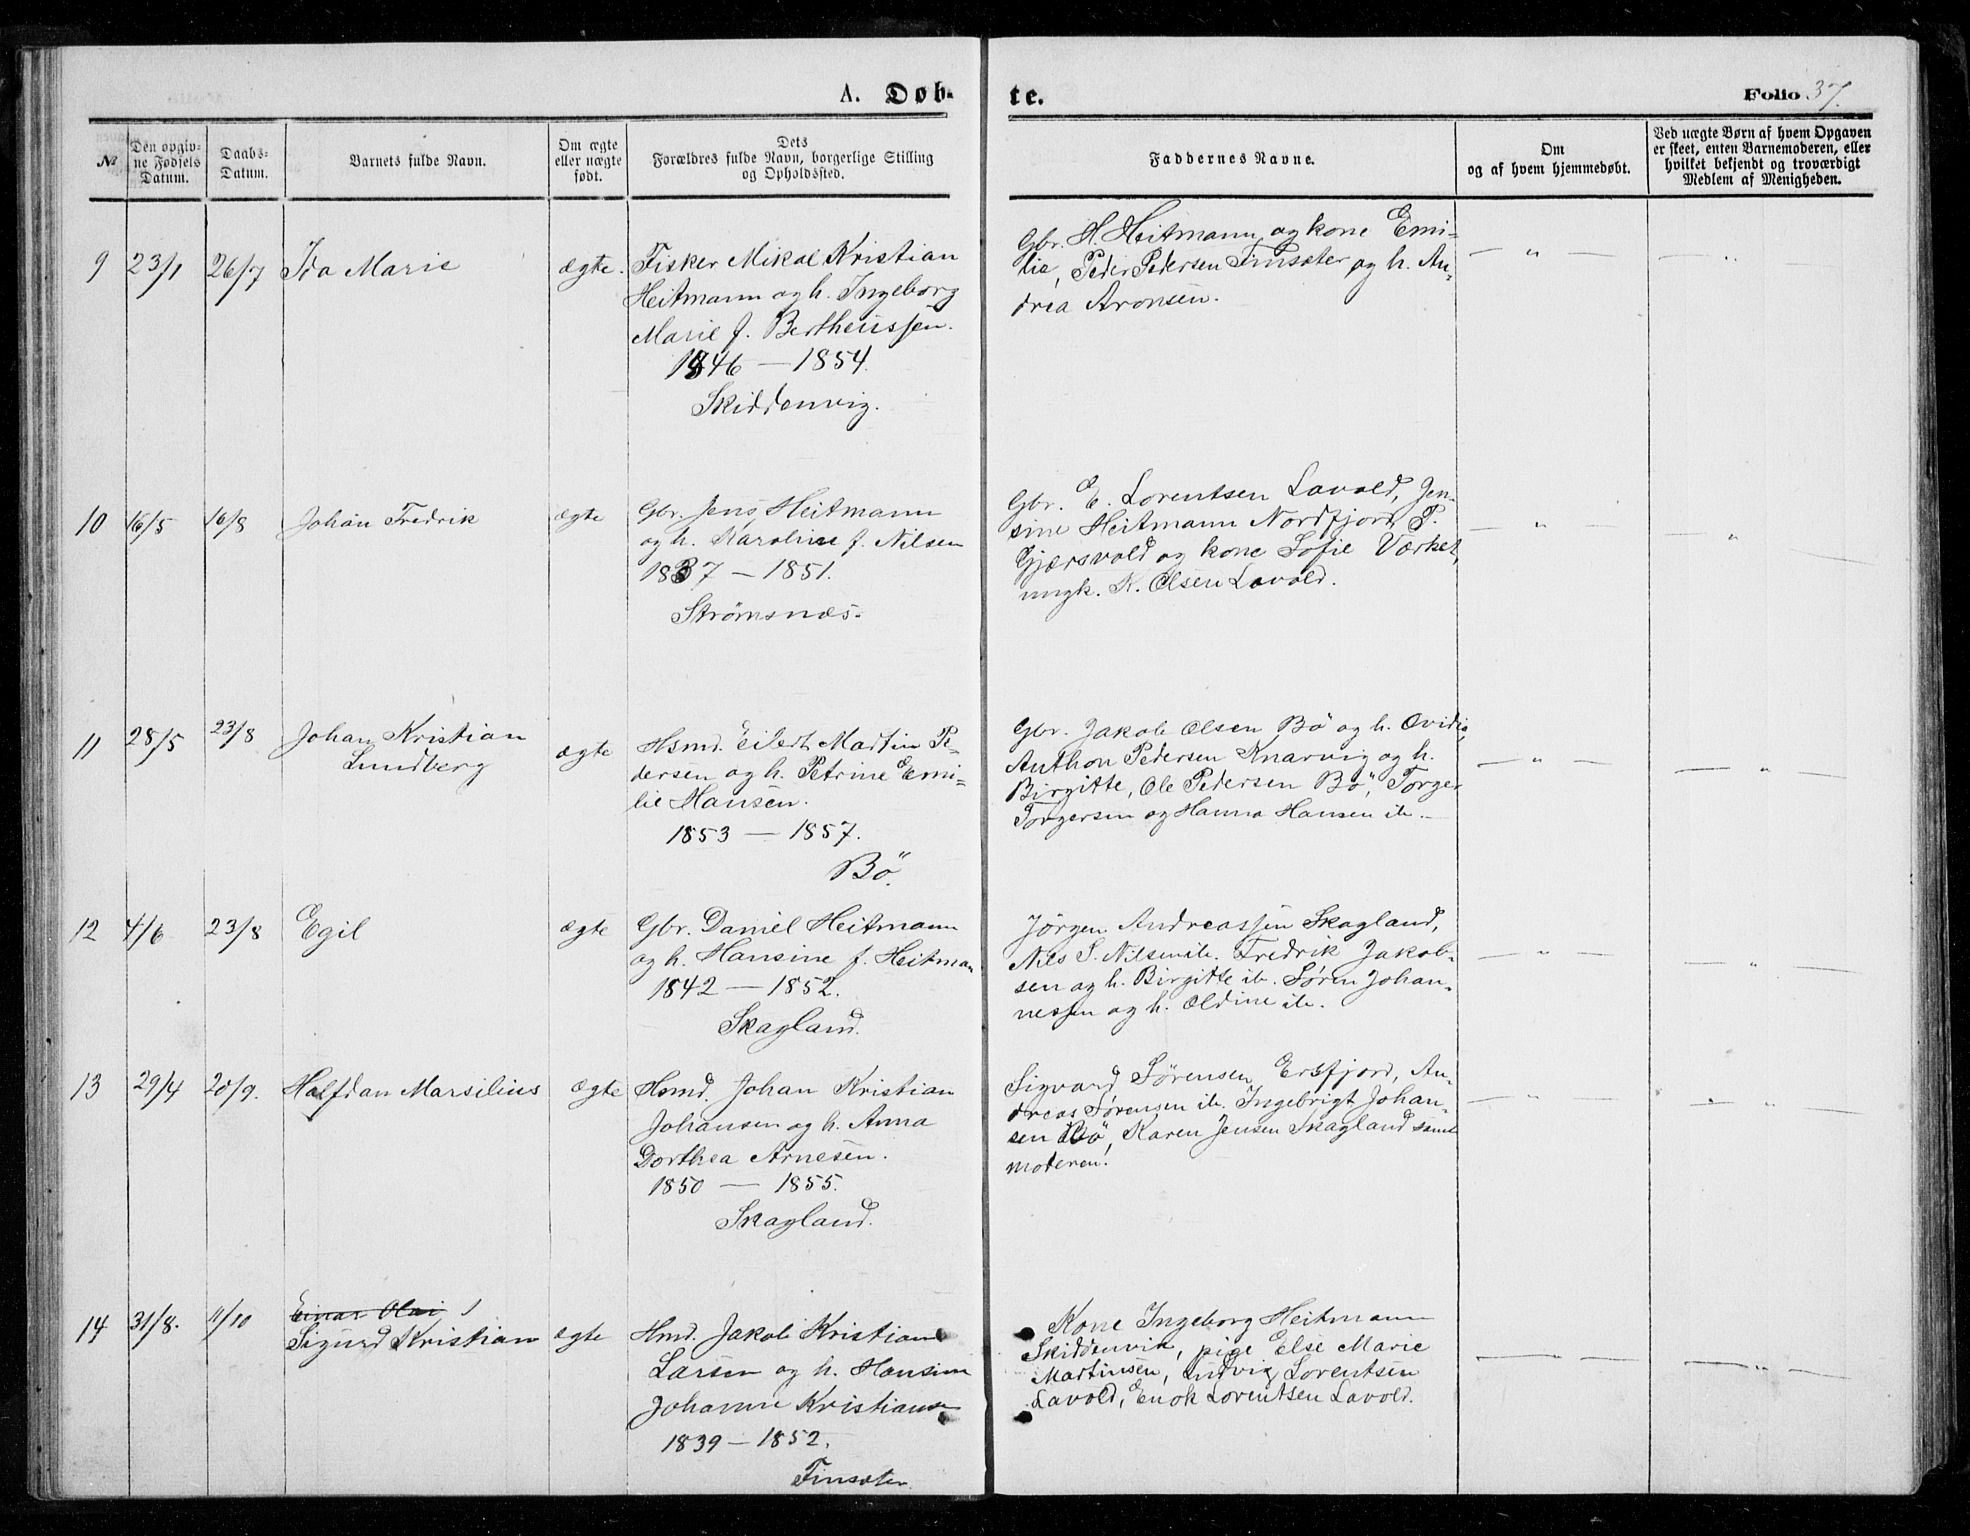 A. Døb-
te.
Folio 37.
№
Den opgiv-
ne Fødsels
Datum.
Daabs-
Datum.
Barnets fulde Navn.
Om ægte
eller uægte
født.
Dets
Forældres fulde Navn, borgerlige Stilling
og Opholdssted.
Faddernes Navne.
Om
og af hvem hjemmedøbt.
Ved uægte Børn af hvem Opgaven
er skeet, enten Barnemoderen, eller
hvilket bekjendt og troværdigt
Medlem af Menigheden.
9
23/1
26/7
Ida Marie
ægte.
Fisker Mikal Kristian
Heitmann og h. Ingeborg
Marie f. Bertheussen.
1846 — 1854.
Skiddenvig.
Gbr. H. Heitmann og kone Emi-
lie, Peder Pedersen Finsæter og h. An-
drea Aronsen.
— " —
— " —
10
16/5
16/8
Johan Fredrik
ægte
Gbr. Jens Heitmann
og h. Karoline f. Nilsen
1837 — 1851.
Strømsnæs.
Gbr. E. Lorentsen Lavold, Jen-
sine Heitmann Nordfjord, P.
Gjærsvold og kone Sofie Værket,
ungk. K. Olsen Lavold.
— " —
— " —
11
28/5
23/8
Johan Kristian
Lundberg
ægte
Hsmd. Eilert Martin Pe-
dersen og h. Petrine Emi-
lie Hansen.
1853 — 1857.
Bö.
Gbr. Jakob Olsen Bö og h. Ovidia,
Anthon Pedersen Knarvig og h.
Birgitte, Ole Pedersen Bö, Torger
Torgersen og Hanna Hansen ib.
— " —
— " —
12
4/6
23/8
Egil
ægte
Gbr. Daniel Heitmann
og h. Hansine f. Heitman
1842 — 1852.
Skagland.
Jørgen Andreassen Skagland,
Nils S. Nilsen ib. Fredrik Jakob-
sen og h. Birgitte ib. Søren Johan-
nessen og h. Oldine ib.
— " —
— " —
13
29/4
20/9.
Halfdan Marsilius
ægte
Hsmd. Johan Kristian
Johansen og h. Anna
Dorthea Arnesen.
1850 — 1855.
Skagland.
Sigvard Sørensen Ersfjord, An-
dreas Sørensen ib. Ingebrigt Johan-
sen Bö, Karen Jensen Skagland samt
moderen.
— " —
— " —
14
31/8.
11/10
Einar Olai
Sigurd Kristian
ægte
Hmd. Jakob Kristian
Larsen og h. Hansine
Johanne Kristianse
1839 — 1852.
Finsæter
Kone Ingeborg Heitmann
Skiddenvik, pige Else Marie
Martinsen, Ludvig Lorentsen
Lavold, Enok Lorentsen Lavold.
— —
— " —